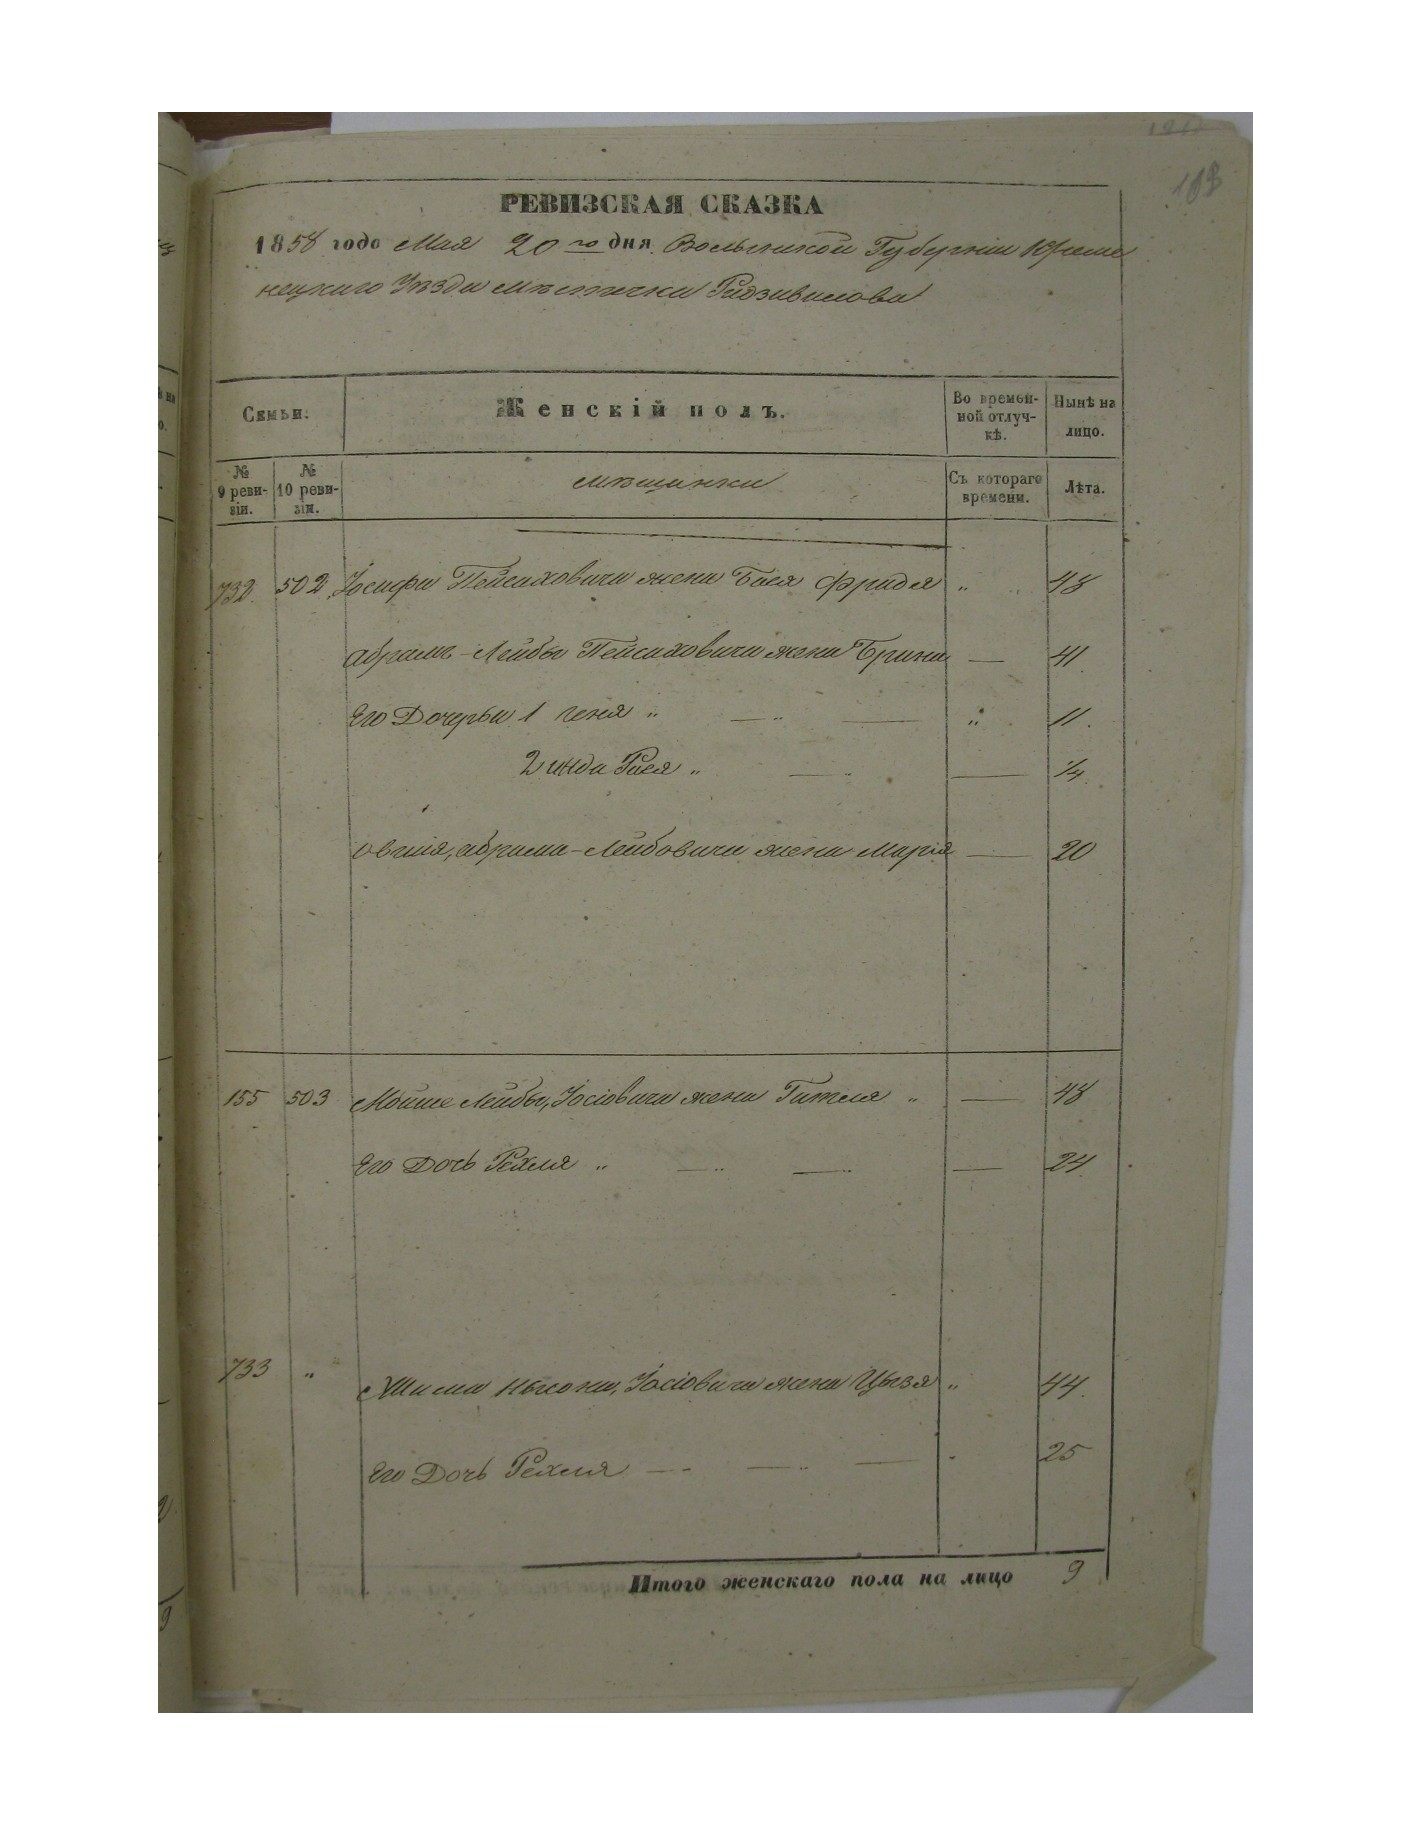 183
РЕВИЗСКАЯ СКАЗКА
1858 года Мая 20го дня Волынской Губерніи Креме
нецкаго Уѣзда мѣстечка Радзивилова
Семьи.
Женскій полъ.
Во времен-
ной отлуч-
кѣ.
Нынѣ на
лицо.
№
9 реви-
зіи.
№
10 реви-
зіи.
мѣщанки
Съ котораго
времени.
Лѣта.
732 502 Іосифа Пейсаховича жена Бася Фрадя " 48
Абрамъ-Лейбы Пейсаховича жена Брина — 41
Его Дочерьи 1 Геня " — " — " 11.
2 Инда Рися " — — 1/4
Овшія, Абрама-Лейбовича жена Марія — 20
155 503 Мойше Лейбы, Іосіовича жена Гитля " — 48
Его Дочь Рехля " — " — — 24
733 " Хаима Нысона, Іосіовича жена Цызя " 44.
Его Дочь Рехля — " — " — " 25
Итого женскаго пола на лицо 9